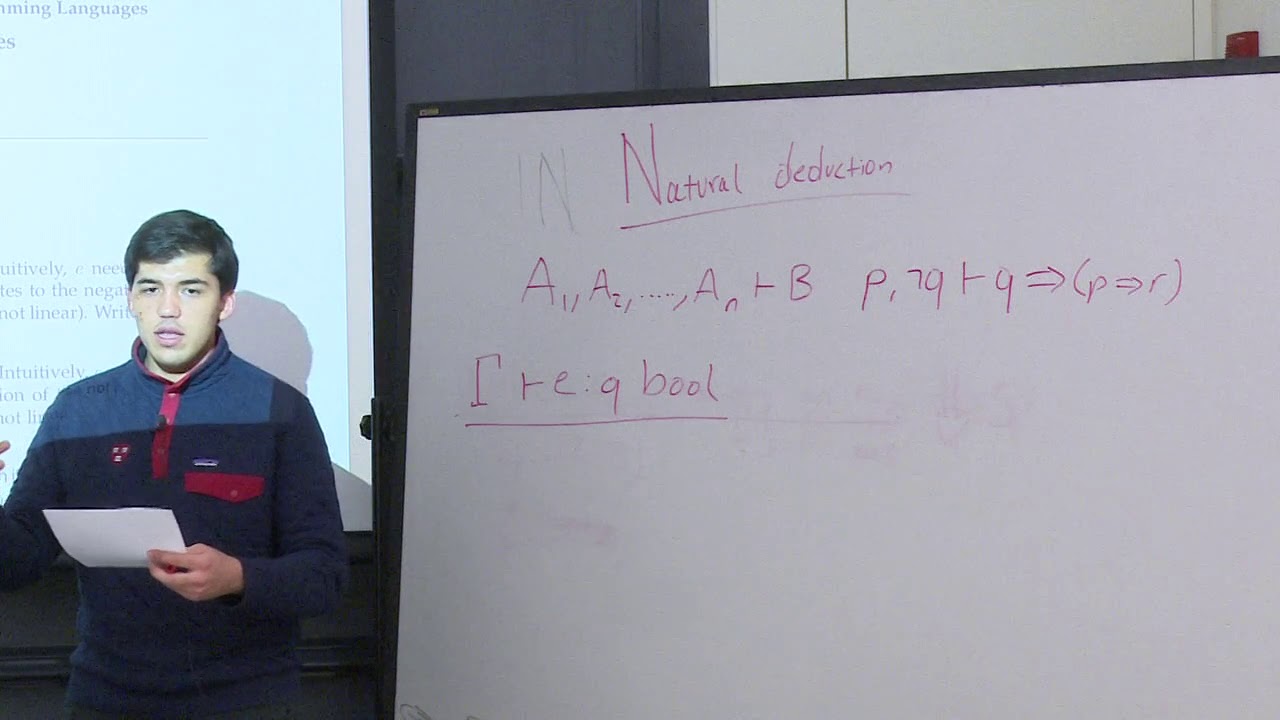 mming Languages
es
uitively, e nee
tes to the nega
not linear). Writ
Intuitively,
tion of
not lin
IN Natural deduction
A₁, A₂, ...., Aₙ ⊢ B p, ¬q ⊢ q ⇒ (p ⇒ r)
Γ ⊢ e : q bool